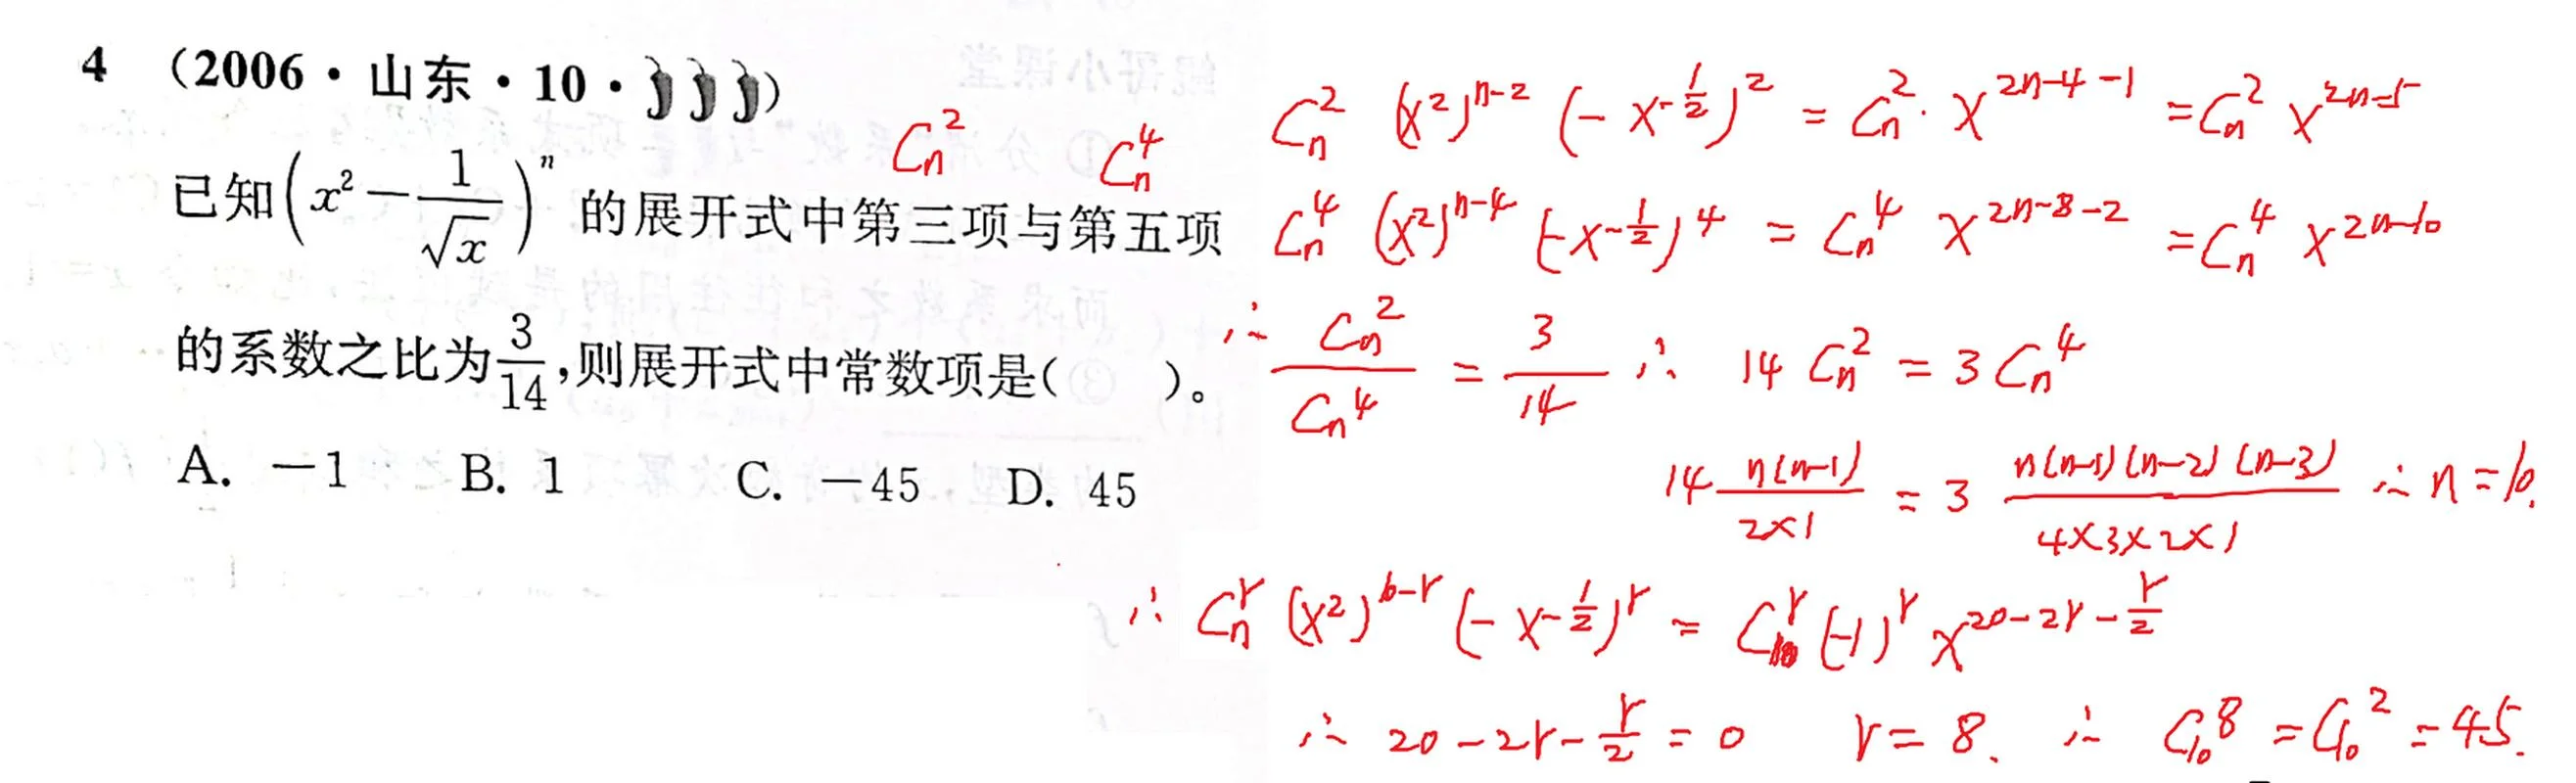 4 (2006·山东·10·)
C_n^2 C_n^4
已知(x^2 - 1/√x)^n 的展开式中第三项与第五项
的系数之比为3/14,则展开式中常数项是( )。
A. -1 B. 1 C. -45 D. 45
C_n^2 (x^2)^{n-2} (-x^{-1/2})^2 = C_n^2 · x^{2n-4-1} = C_n^2 x^{2n-5}
C_n^4 (x^2)^{n-4} (-x^{-1/2})^4 = C_n^4 x^{2n-8-2} = C_n^4 x^{2n-10}
∴ C_n^2/C_n^4 = 3/14 ∴ 14 C_n^2 = 3 C_n^4
14 n(n-1)/2×1 = 3 n(n-1)(n-2)(n-3)/4×3×2×1 ∴ n=10.
∴ C_n^r (x^2)^{10-r} (-x^{-1/2})^r = C_10^r (-1)^r x^{20-2r-r/2}
∴ 20-2r-r/2 = 0 r = 8. ∴ C_10^8 = C_10^2 = 45.